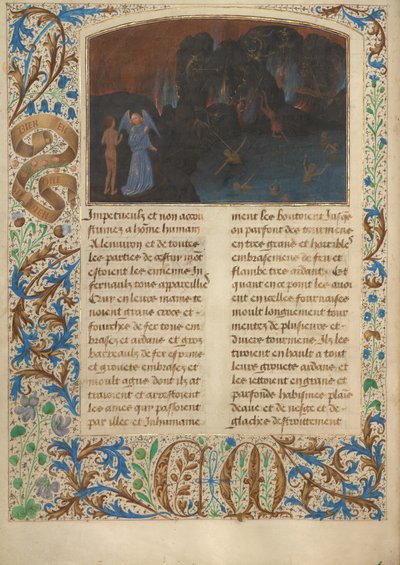 Impetueulx et non accou
stumez a home humain
A lenuiron et de toutes
les parties de cestui mont
estoient les ennemis in
fernaulx tous appareilliez
Qui en leurs mains te
noient grans crocz et
fourches de fer tous em
brasez et ardans et gros
barreaulx de fer espris
et grouetz embrasez et
moult agus dont ilz at
traioient et arrestoient
les ames qui passoient
par illec et Inhumaine
ment les boutoient Jusqes
ou parfont des tourmens
en tres grans et horribles
embrasemens de feu et
flambe tres ardant Et
quant en ce point les auoi
ent en icelles fournaises
moult longuement tour
mentez de plusieurs et
diuers tourmens Ilz les
tiroient en hault a tout
leurs grouetz ardans et
les iettoient en grans et
parfonde habismes plais
deaue et de neige et de
glaches destroittement